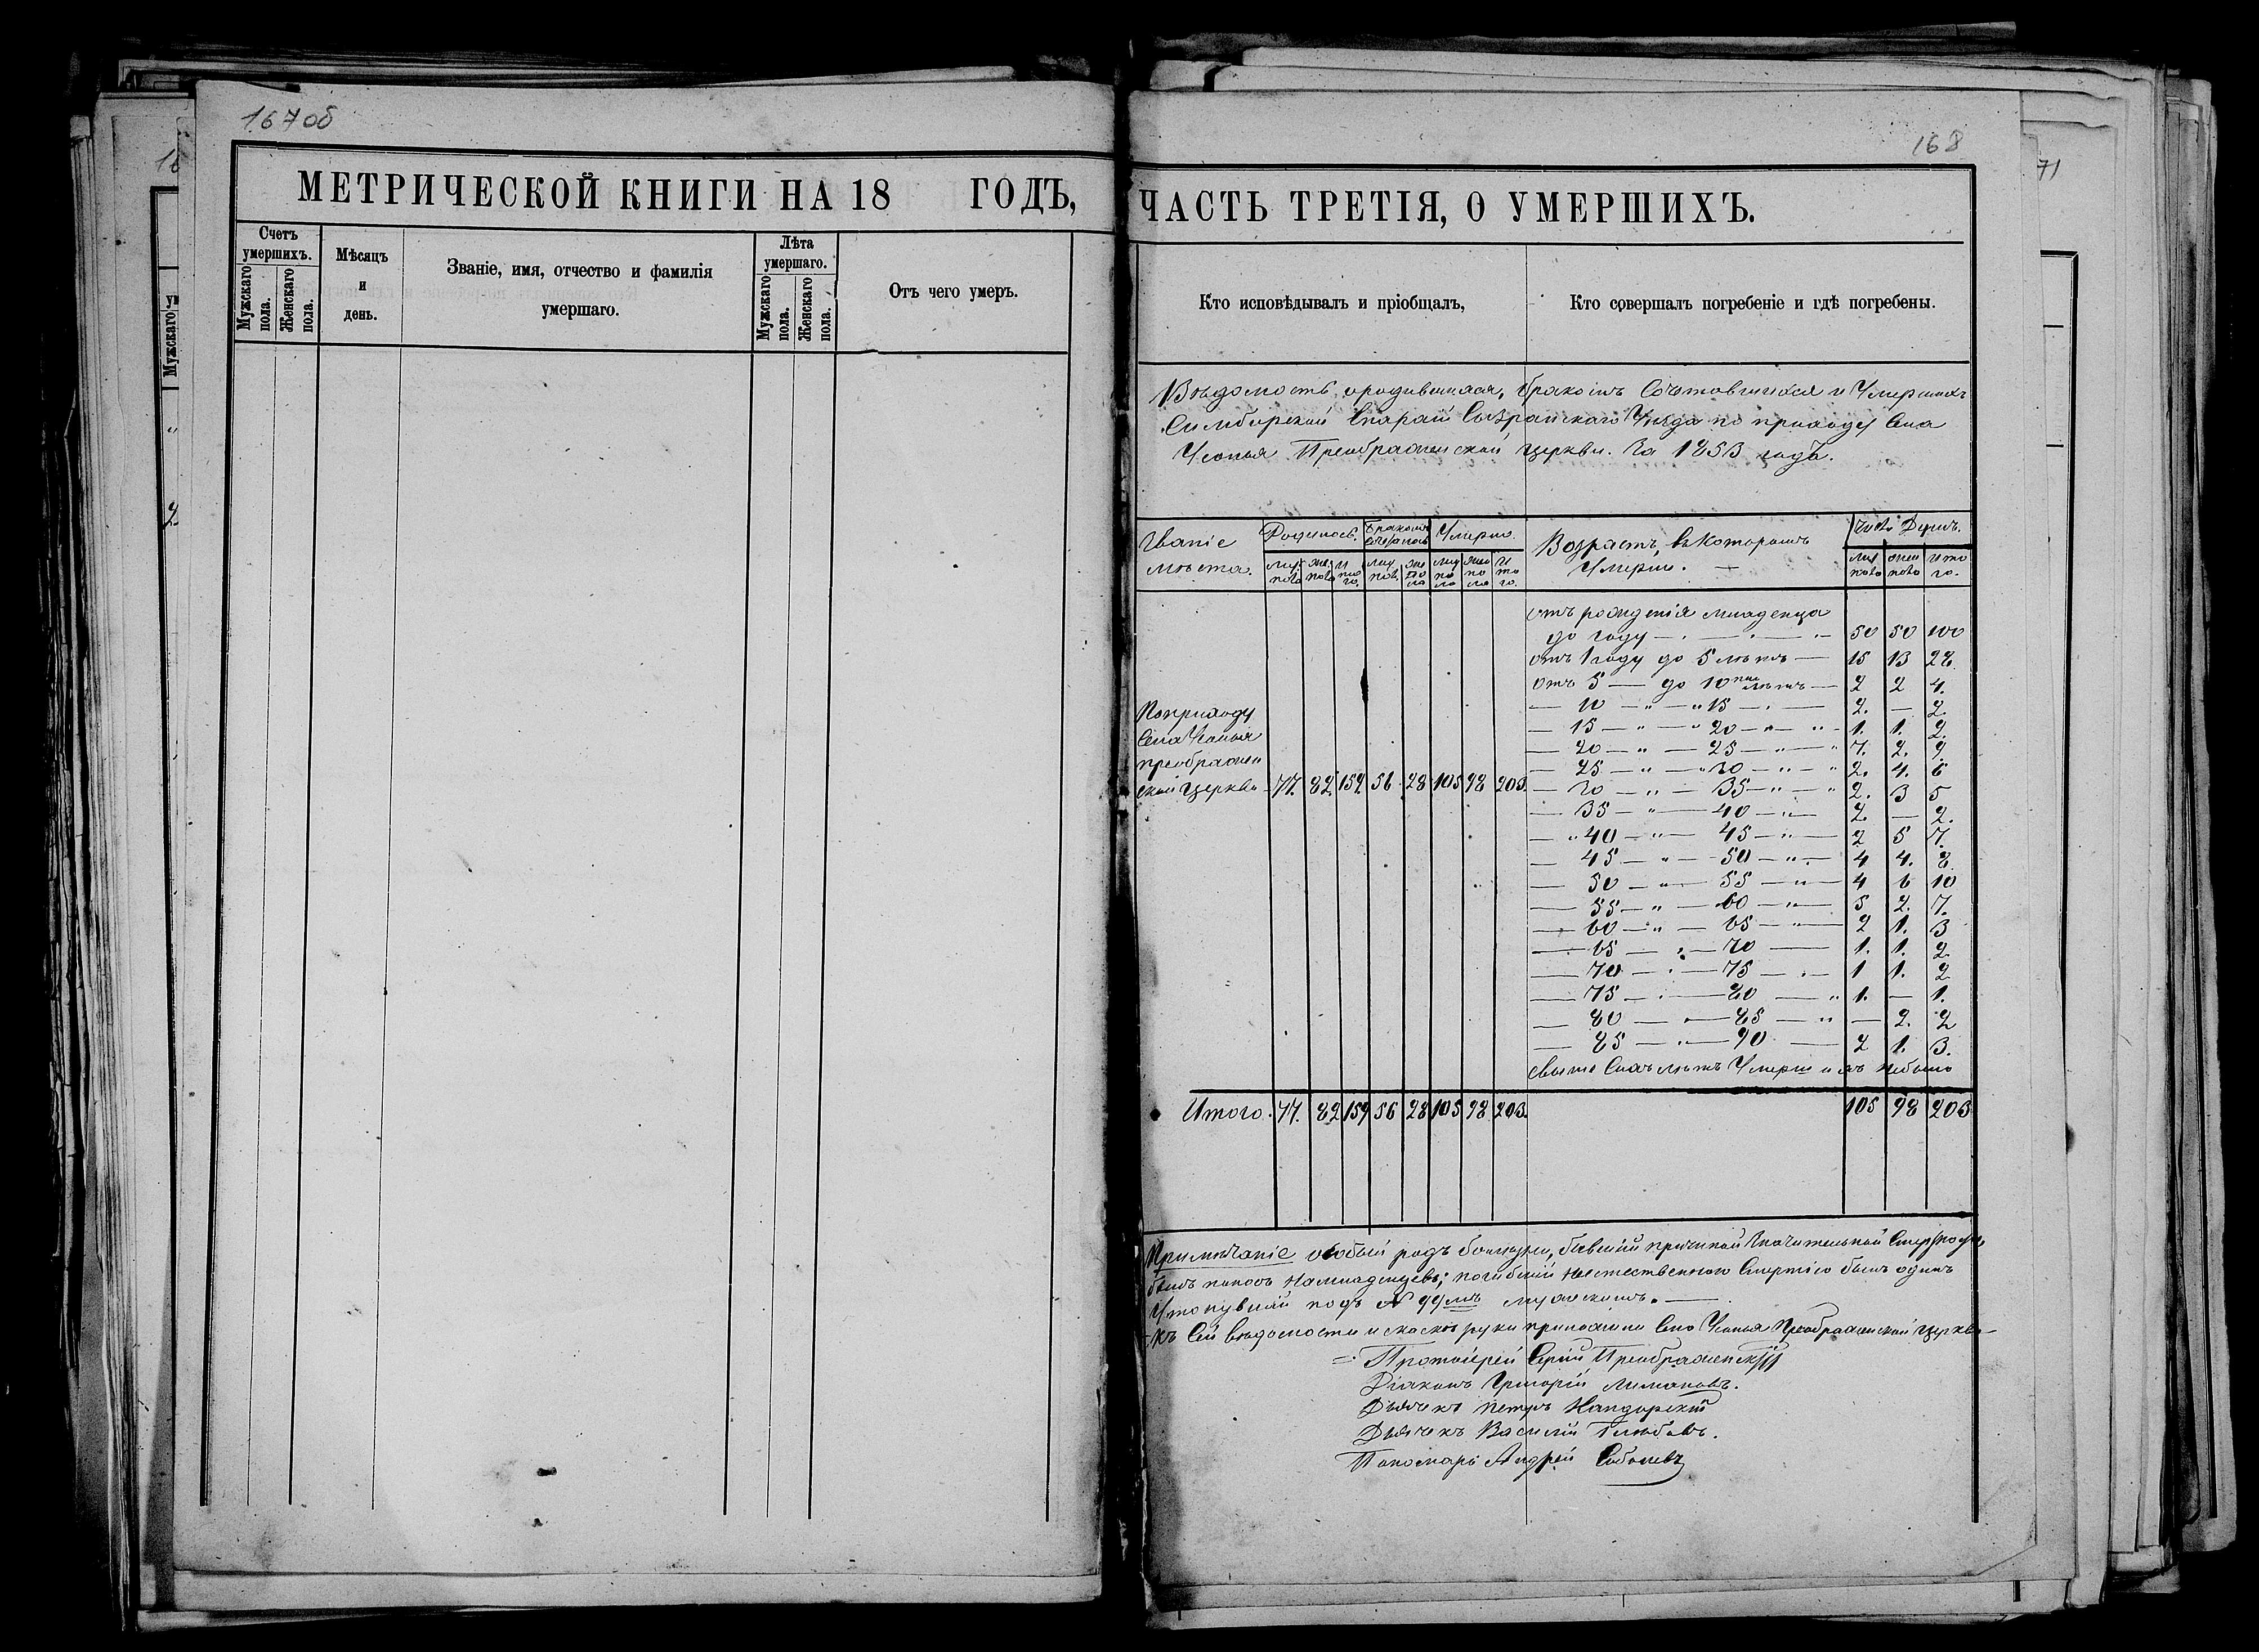 167об
168
71
МЕТРИЧЕСКОЙ КНИГИ НА 18 ГОДЪ,
ЧАСТЬ ТРЕТІЯ, О УМЕРШИХЪ.
Счетъ умершихъ.
Мужскаго пола.
Женскаго пола.
Мѣсяцъ и день.
Званіе, имя, отчество и фамилія умершаго.
Лѣта умершаго.
Мужскаго пола.
Женскаго пола.
Отъ чего умеръ.
Кто исповѣдывалъ и пріобщалъ,
Кто совершалъ погребеніе и гдѣ погребены.
Вѣдомость, ородившихся, бракомъ Сочетовшихся и Умершихъ
Симбирской Епархіи Сызранскаго Уѣзда по приходу Села
Усолья Преображенской Церкви. За 1853 годъ.
Званіе мѣста.
Родилось.
Бракомъ
Умерло.
Возрастъ, вкоторомъ
Умерли. —
Число Душъ.
отъ рожденія младенца
до году — 50 50 100
отъ 1 году до 5 лѣтъ — 15 13 28.
Отъ 5 — до 10 лѣтъ — 2 2 4.
— 10 — " — " 15 — 2. — 2.
— 15 — " — " 20 — " — " 1. 1. 2.
— 20 — " — 25 — " — " 7. 2. 9.
— 25 — " — " 30 — " — " 2. 4. 6
— 30 — " — 35 — " — " 2. 3 5
— 35 — " — 40 — " 2. — 2.
— " 40 — " — 45 — " — 2 5 7.
— 45 — " — 50 — " — 4 4. 8.
— 50 — " — 55 — " — 4 6 10
— 55 — " — 60 — " — 5 2. 7.
— 60 — " — 65 — " — 2 1. 3
— 65 — 70 — 1. 1. 2
— 70 — 75 — 1 1. 2
— 75 — 80 — " 1. — 1.
— 80 — 85 — " — 2. 2
— 85 — 90 — 2 1. 3.
свыше Сихъ лѣтъ Умершихъ небыло
Поприходу
Села Усолья
преображен
ской Церкви 77. 82. 159 56 28 105 98 203.
Итого. 77. 82 159 56 28 105 98 203. 105 98 203
Примѣчаніе особый родъ болѣзни, бывшій причиной Значительной Смертности,
былъ поносъ намладенцевъ; погибшій неестественною Смертію былъ одинъ
Утопувшій подъ № 99мъ мужескимъ. —
Къ Сей вѣдомости руки приложили Села Усолья Преображенской церкви —
Протоіерей Сергій Преображенскій
Діаконъ Григорій Лимановъ.
Дьячекъ Петръ
Дьячекъ Василій
Пономарь Андрей Соболевъ